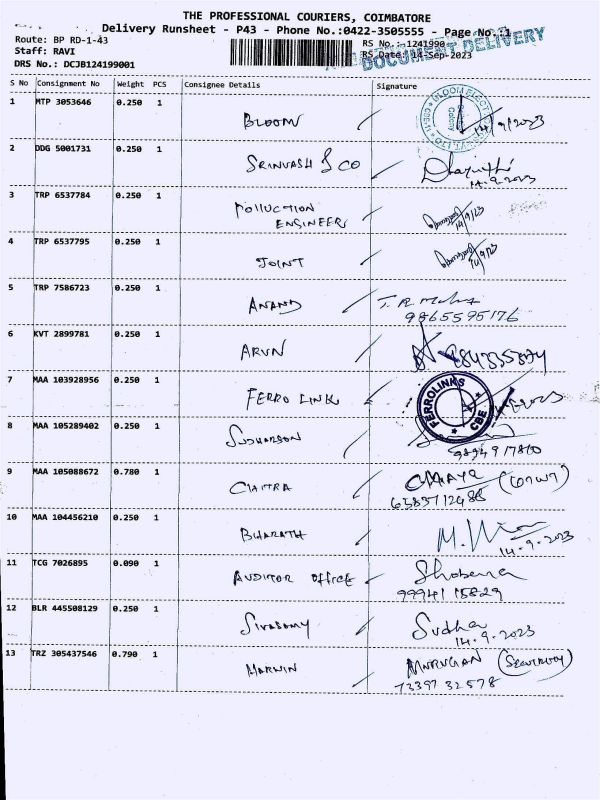 THE PROFESSIONAL COURIERS, COIMBATORE
Delivery Runsheet - P43 - Phone No.:0422-3505555 - Page No.:1
DOCUMENT DELIVERY
Route: BP RD-1-43
RS No.: 1241990
Staff: RAVI
RS Date: 14-Sep-2023
DRS No.: DCJB124199001
S No Consignment No Weight PCS Consignee Details Signature
1 MTP 3053646 0.250 1 BLOOM 14/9/2023
2 DDG 5001731 0.250 1 SRINVASH & CO
14.9.2023
3 TRP 6537784 0.250 1 POLLUCTION
ENGINEER 14/9/23
4 TRP 6537795 0.250 1 JOINT 14/9/23
5 TRP 7586723 0.250 1 ANAND T.R. Mohan
9865595176
6 KVT 2899781 0.250 1 ARUN
7 MAA 103928956 0.250 1 FERRO LINKS
FERROLINKS
CBE
8 MAA 105289402 0.250 1 SUDHARSON
9894917810
9 MAA 105088672 0.780 1 CHAITRA
10 MAA 104456210 0.250 1 BHARATH
14.9.2023
11 TCG 7026895 0.090 1 AUDITOR OFFICE Shobana
99941 15829
12 BLR 445508129 0.250 1 SIVASAMY Sudha
14.9.2023
13 TRZ 305437546 0.790 1 MARWIN MURUGAN (Security)
73397 32578